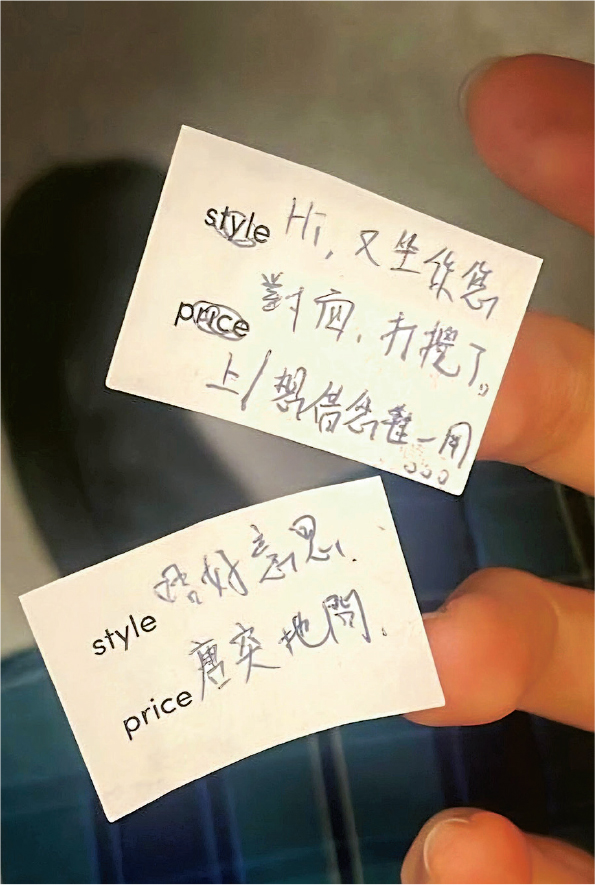 style Hi, 又坐係您
price 對面, 打攪了。
上/想借您一用
。。。
style 唔好意思、
price 唐突地問,